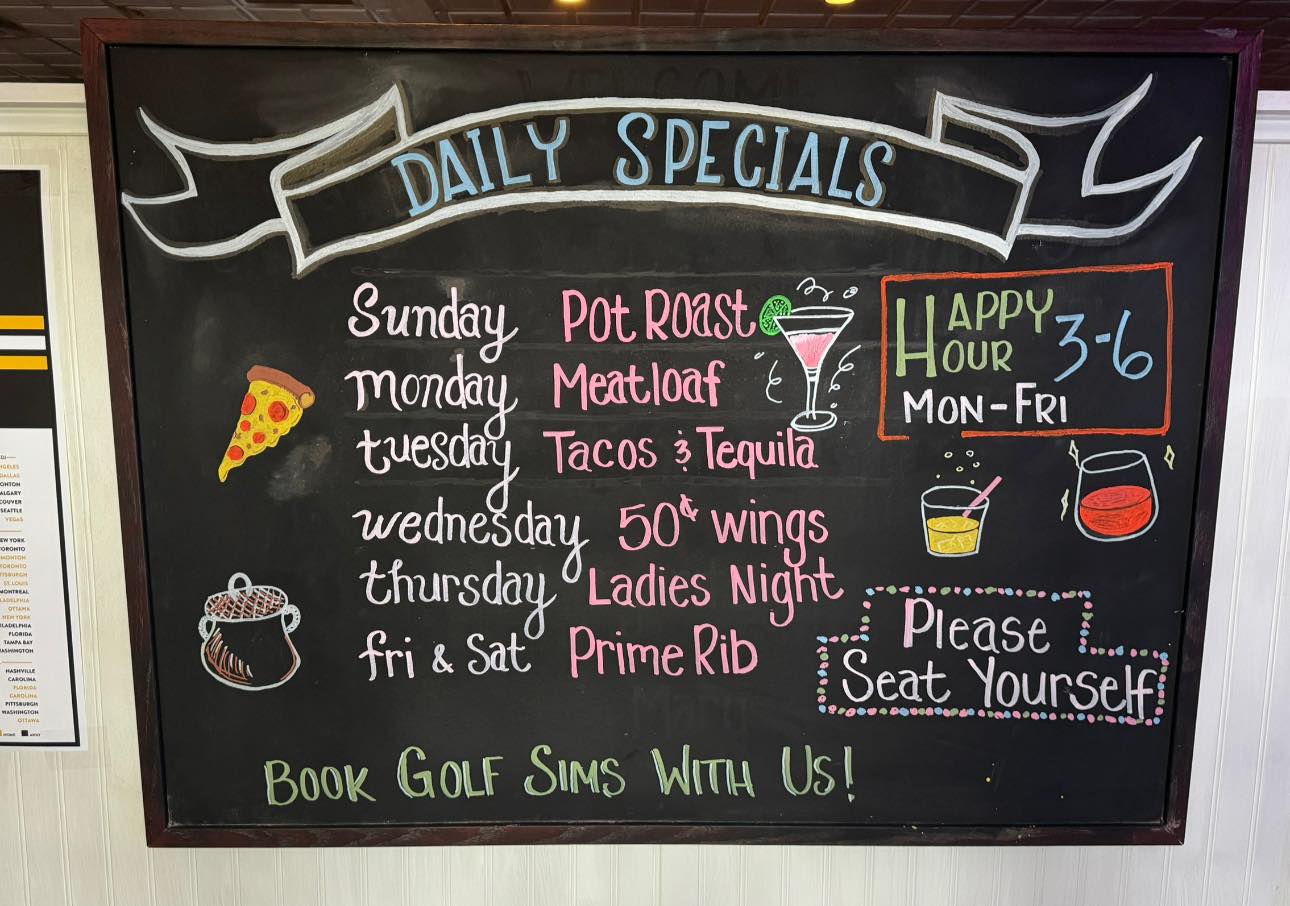 DAILY SPECIALS
Sunday Pot Roast
monday Meatloaf
tuesday Tacos & Tequila
wednesday 50¢ wings
thursday Ladies Night
fri & Sat Prime Rib
HAPPY HOUR 3-6
MON-FRI
Please
Seat Yourself
BOOK GOLF SIMS WITH US!
DALLAS
CALGARY
SEATTLE
VEGAS
NEW YORK
TORONTO
EDMONTON
TORONTO
PITTSBURGH
ST. LOUIS
MONTREAL
PHILADELPHIA
OTTAWA
NEW YORK
PHILADELPHIA
FLORIDA
TAMPA BAY
WASHINGTON
NASHVILLE
CAROLINA
FLORIDA
CAROLINA
PITTSBURGH
WASHINGTON
OTTAWA
HOME AWAY